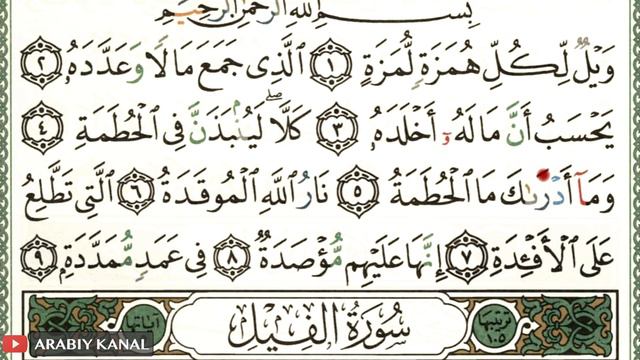 بِسْمِ ٱللَّهِ ٱلرَّحْمَٰنِ ٱلرَّحِيمِ
وَيْلٌ لِّكُلِّ هُمَزَةٍ لُّمَزَةٍ ١ ٱلَّذِى جَمَعَ مَالًا وَعَدَّدَهُۥ ٢
يَحْسَبُ أَنَّ مَالَهُۥٓ أَخْلَدَهُۥ ٣ كَلَّا ۖ لَيُنۢبَذَنَّ فِى ٱلْحُطَمَةِ ٤
وَمَآ أَدْرَىٰكَ مَا ٱلْحُطَمَةُ ٥ نَارُ ٱللَّهِ ٱلْمُوقَدَةُ ٦ ٱلَّتِى تَطَّلِعُ
عَلَى ٱلْأَفْـِٔدَةِ ٧ إِنَّهَا عَلَيْهِم مُّؤْصَدَةٌ ٨ فِى عَمَدٍ مُّمَدَّدَةٍۭ ٩
سُورَةُ الفِيلِ
ARABIY KANAL